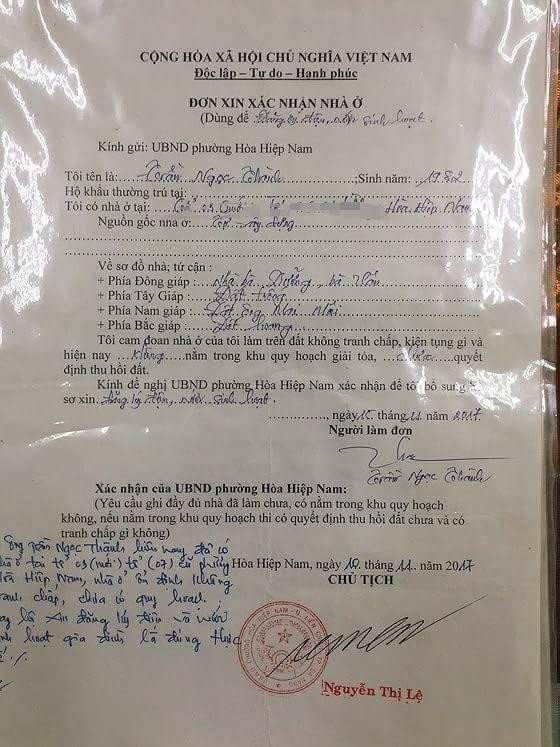 CỘNG HÒA XÃ HỘI CHỦ NGHĨA VIỆT NAM
Độc lập – Tự do – Hạnh phúc
ĐƠN XIN XÁC NHẬN NHÀ Ở
(Dùng để Đăng ký điện, nước sinh hoạt.
Kính gửi: UBND phường Hòa Hiệp Nam
Tôi tên là: Trần Ngọc Thành ;Sinh năm: 1982
Hộ khẩu thường trú tại:
Tôi có nhà ở tại: Hòa Hiệp Nam
Nguồn gốc nhà ở:
Về sơ đồ nhà; tứ cận :
+ Phía Đông giáp : nhà bà
+ Phía Tây Giáp : Đất trống
+ Phía Nam giáp : Đất ông
+ Phía Bắc giáp : Đất hoang
Tôi cam đoan nhà ở của tôi làm trên đất không tranh chấp, kiện tụng gì và
hiện nay không nằm trong khu quy hoạch giải tỏa, chưa quyết
định thu hồi đất.
Kính đề nghị UBND phường Hòa Hiệp Nam xác nhận để tôi bổ sung
sơ xin. Đăng ký điện, nước sinh hoạt.
, ngày 10 tháng 11 năm 2017
Người làm đơn
Trần Ngọc Thành
Xác nhận của UBND phường Hòa Hiệp Nam:
(Yêu cầu ghi đầy đủ nhà đã làm chưa, có nằm trong khu quy hoạch
không, nếu nằm trong khu quy hoạch thì có quyết định thu hồi đất chưa và có
tranh chấp gì không)
Ông Trần Ngọc Thành hiện nay đã có
nhà ở tại tổ 03 (mới) tổ (07) cũ phường
Hòa Hiệp Nam, nhà ở ổn định không
tranh chấp, chưa có quy hoạch.
nay là xin đăng ký điện và nước
sinh hoạt gia đình là đúng thực
Hòa Hiệp Nam, ngày 10 tháng 11 năm 2017
CHỦ TỊCH
Nguyễn Thị Lệ